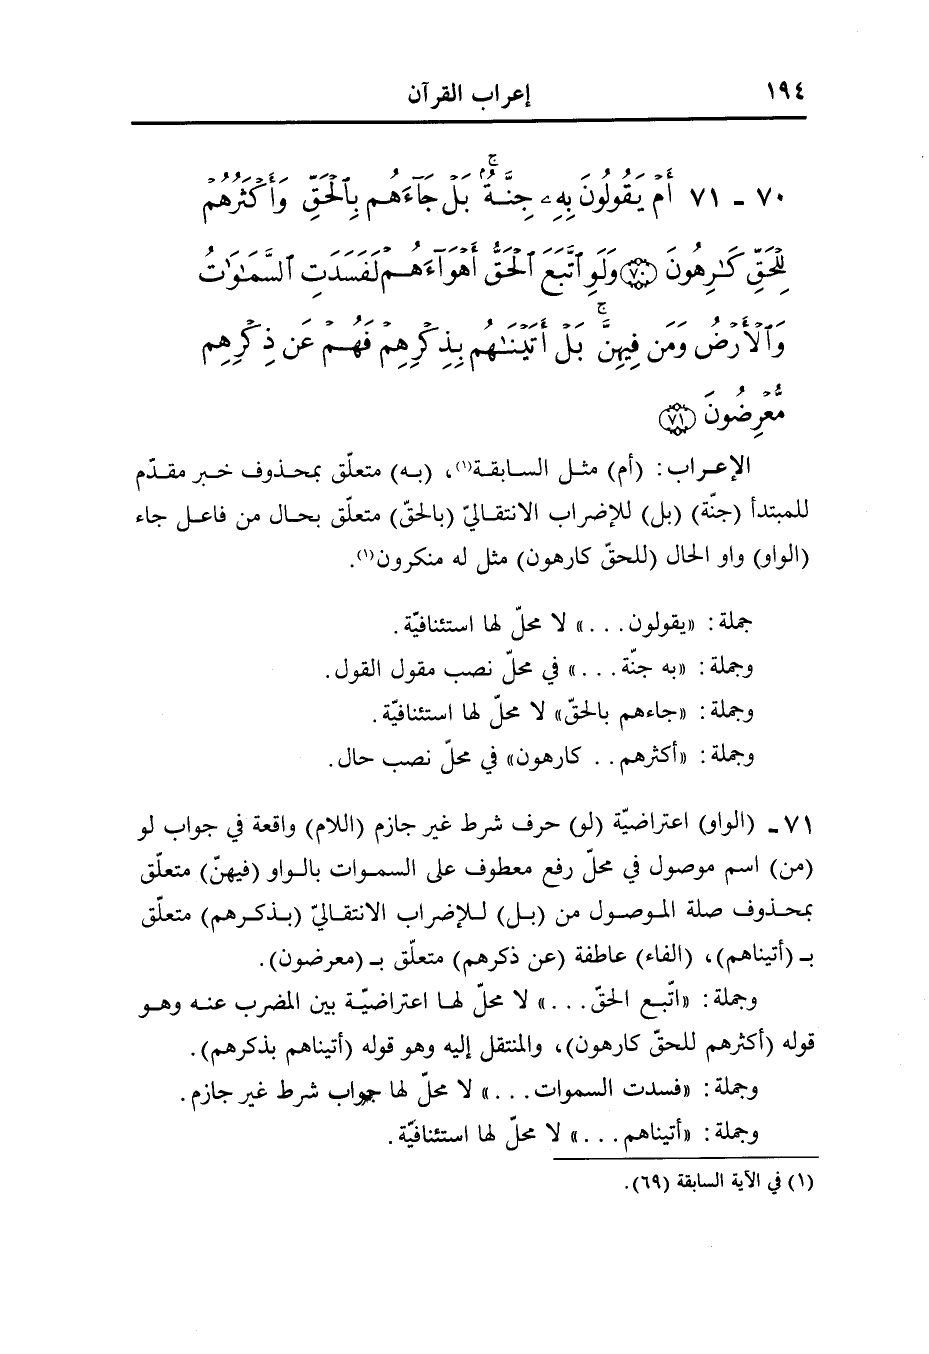 ١٩٤
إعراب القرآن
٧٠ ـ ٧١ أَمْ يَقُولُونَ بِهِۦ جِنَّةٌۢ ۚ بَلْ جَآءَهُم بِٱلْحَقِّ وَأَكْثَرُهُمْ
لِلْحَقِّ كَـٰرِهُونَ ﴿٧٠﴾ وَلَوِ ٱتَّبَعَ ٱلْحَقُّ أَهْوَآءَهُمْ لَفَسَدَتِ ٱلسَّمَـٰوَٰتُ
وَٱلْأَرْضُ وَمَن فِيهِنَّ ۚ بَلْ أَتَيْنَـٰهُم بِذِكْرِهِمْ فَهُمْ عَن ذِكْرِهِم
مُّعْرِضُونَ ﴿٧١﴾
الإعراب: (أم) مثل السابقة(١)، (به) متعلّق بمحذوف خبر مقدّم
للمبتدأ (جنّة) (بل) للإضراب الانتقاليّ (بالحقّ) متعلّق بحال من فاعل جاء
(الواو) واو الحال (للحقّ كارهون) مثل له منكرون(١).
جملة: «يقولون...» لا محلّ لها استئنافيّة.
وجملة: «به جنّة...» في محلّ نصب مقول القول.
وجملة: «جاءهم بالحقّ» لا محلّ لها استئنافيّة.
وجملة: «أكثرهم.. كارهون» في محلّ نصب حال.
٧١ ـ (الواو) اعتراضيّة (لو) حرف شرط غير جازم (اللام) واقعة في جواب لو
(من) اسم موصول في محلّ رفع معطوف على السموات بالواو (فيهنّ) متعلّق
بمحذوف صلة الموصول من (بل) للإضراب الانتقاليّ (بذكرهم) متعلّق
بـ (أتيناهم)، (الفاء) عاطفة (عن ذكرهم) متعلّق بـ (معرضون).
وجملة: «اتّبع الحقّ...» لا محلّ لها اعتراضيّة بين المضرب عنه وهو
قوله (أكثرهم للحقّ كارهون)، والمنتقل إليه وهو قوله (أتيناهم بذكرهم).
وجملة: «فسدت السموات...» لا محلّ لها جواب شرط غير جازم.
وجملة: «أتيناهم...» لا محلّ لها استئنافيّة.
(١) في الآية السابقة (٦٩).